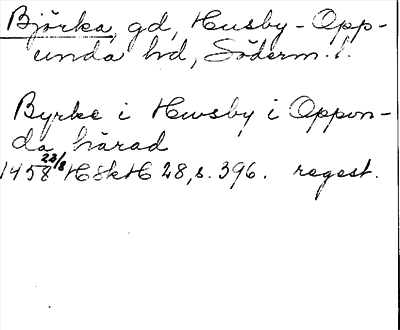 Björka, gd, Husby-Opp-
unda hd, Söderm. l.
Byrke i Hwsby i Oppon-
da härad
1458 23/8 HSkH 28, s. 396. regest.